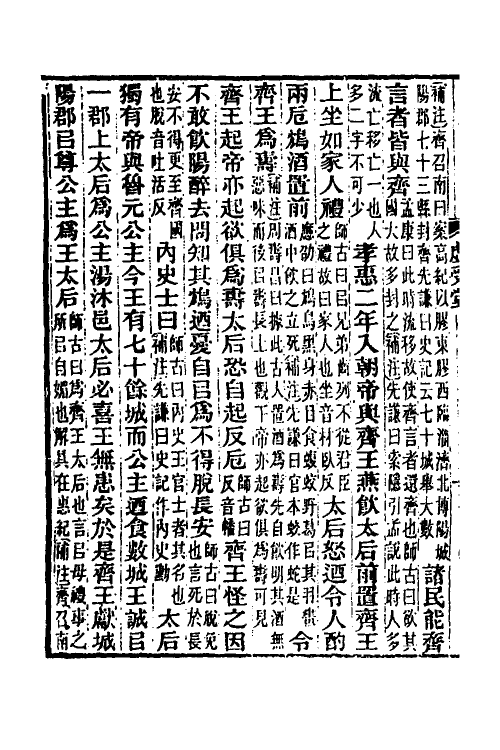 補注齊召南曰案高紀以膠東膠西臨淄濟北博陽城
陽郡七十三縣封齊先謙曰史記云七十城舉大數 諸民能齊
言者皆與齊 孟康曰此時流移故使齊言者還齊也師古曰欲其
國大故多封之補注先謙曰案隱引孟說此時人多
流亡移亡一也人
多二字不可少 孝惠二年入朝帝與齊王燕飲太后前置齊王
上坐如家人禮 師古曰㠯兄弟齒列不從君臣
之禮故曰家人也坐音材臥反 太后怒迺令人酌
兩卮鴆酒置前 應劭曰鴆鳥黑身赤目食蝮蛇野葛㠯其羽
酒中飲之立死補注先謙曰官本蛟作蛇是 令
齊王爲壽 古人置酒爲壽先自飲明其酒無
也觀下帝亦起欲俱爲壽可見
齊王起帝亦起欲俱爲壽太后恐自起反卮 師古曰
反音幡 齊王怪之因
不敢飲陽醉去問知其鴆迺憂自㠯爲不得脫長安 師古曰脫免
也言死於長
安不得更至齊國
也脫音吐活反 內史士曰 師古曰內史王官士者其名也
補注先謙曰史記作內史勳 太后
獨有帝與魯元公主今王有七十餘城而公主迺食數城王誠㠯
一郡上太后爲公主湯沐邑太后必喜王無患矣於是齊王獻城
陽郡㠯尊公主爲王太后 師古曰爲齊王太后也言㠯母禮事之
所㠯自媚也解具在惠紀補注齊召南